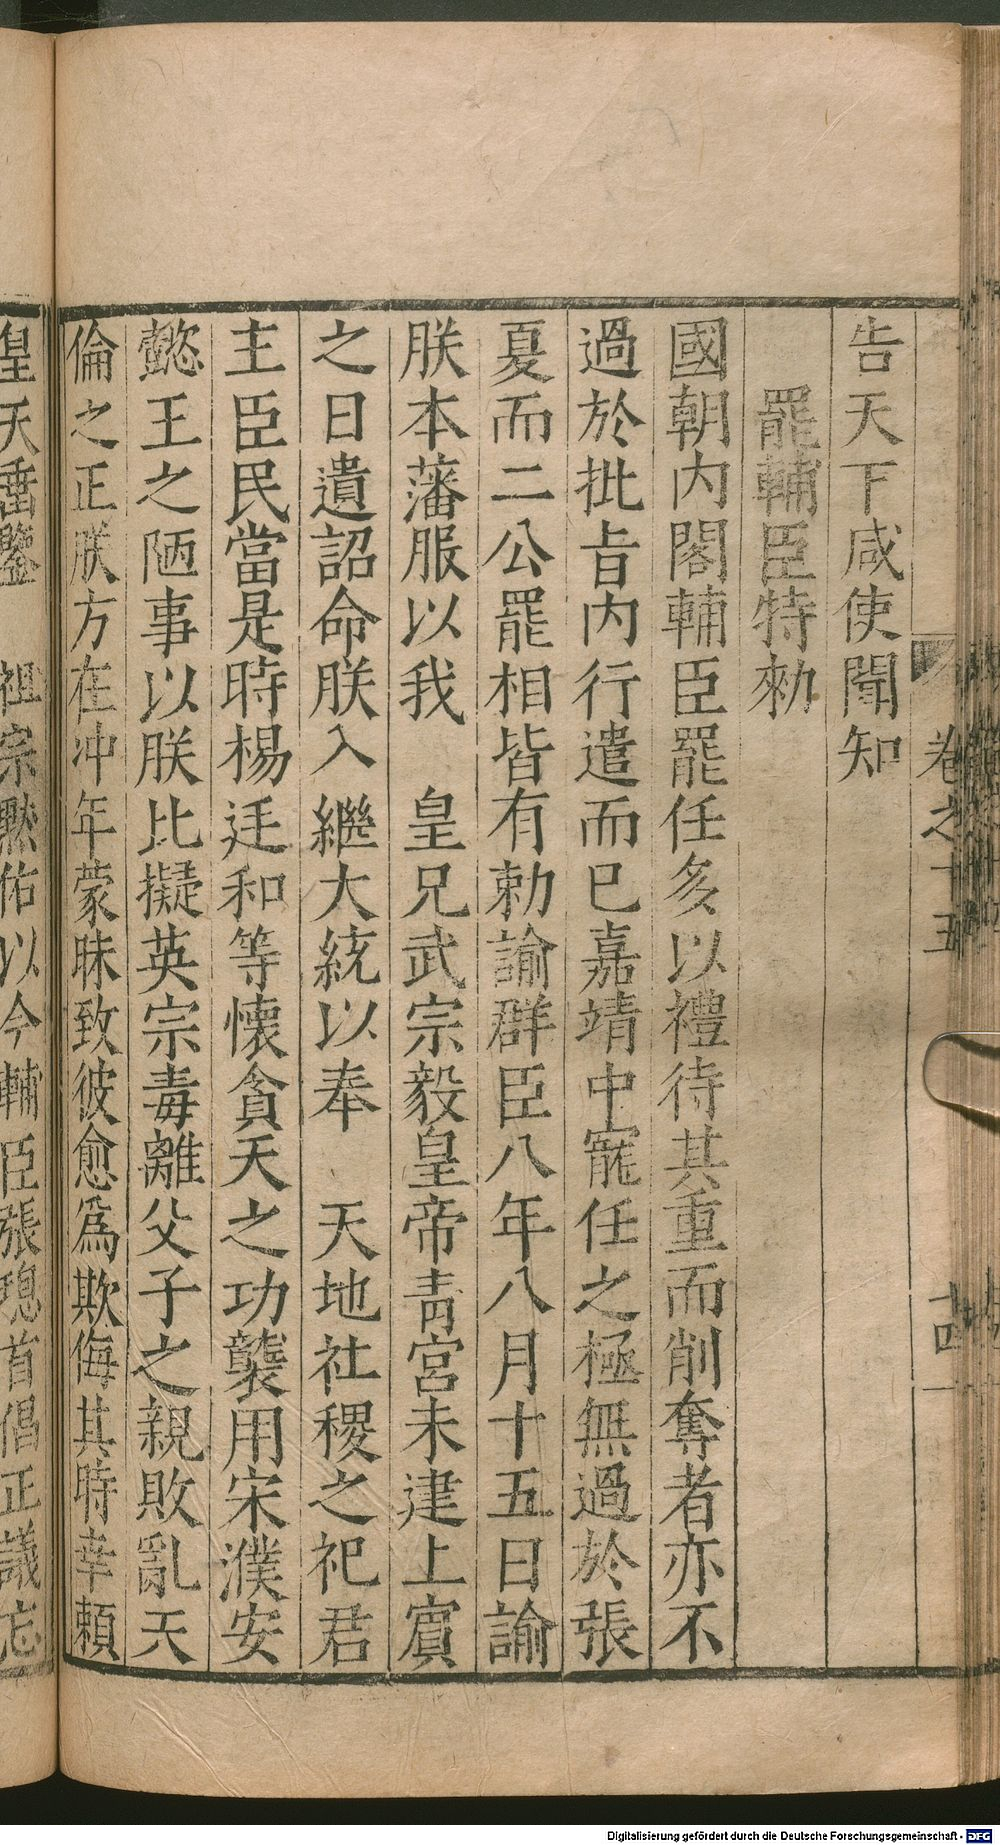 卷之十五
十四
告天下咸使聞知
罷輔臣特勑
國朝內閣輔臣罷任多以禮待其重而削奪者亦不
過於批旨內行遣而已嘉靖中寵任之極無過於張
夏而二公罷相皆有勅諭群臣八年八月十五日諭
朕本藩服以我 皇兄武宗毅皇帝青宮未建上賓
之日遺詔命朕入 繼大統以奉 天地社稷之祀君
主臣民當是時楊廷和等懷貪天之功襲用宋濮安
懿王之陋事以朕比擬英宗毒離父子之親敗亂天
倫之正朕方在冲年蒙昧致彼愈爲欺侮其時幸賴
皇天垂鑒 祖宗默佑以今輔臣張璁首倡正議忘
Digitalisierung gefördert durch die Deutsche Forschungsgemeinschaft - DFG